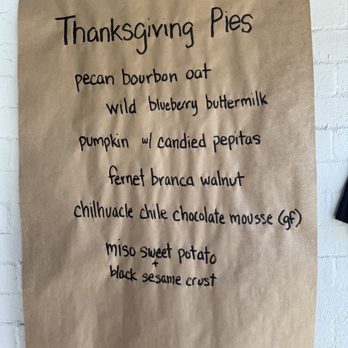 Thanksgiving Pies
pecan bourbon oat
wild blueberry buttermilk
pumpkin w/ candied pepitas
fernet branca walnut
chilhuacle chile chocolate mousse (gf)
miso sweet potato
+
black sesame crust